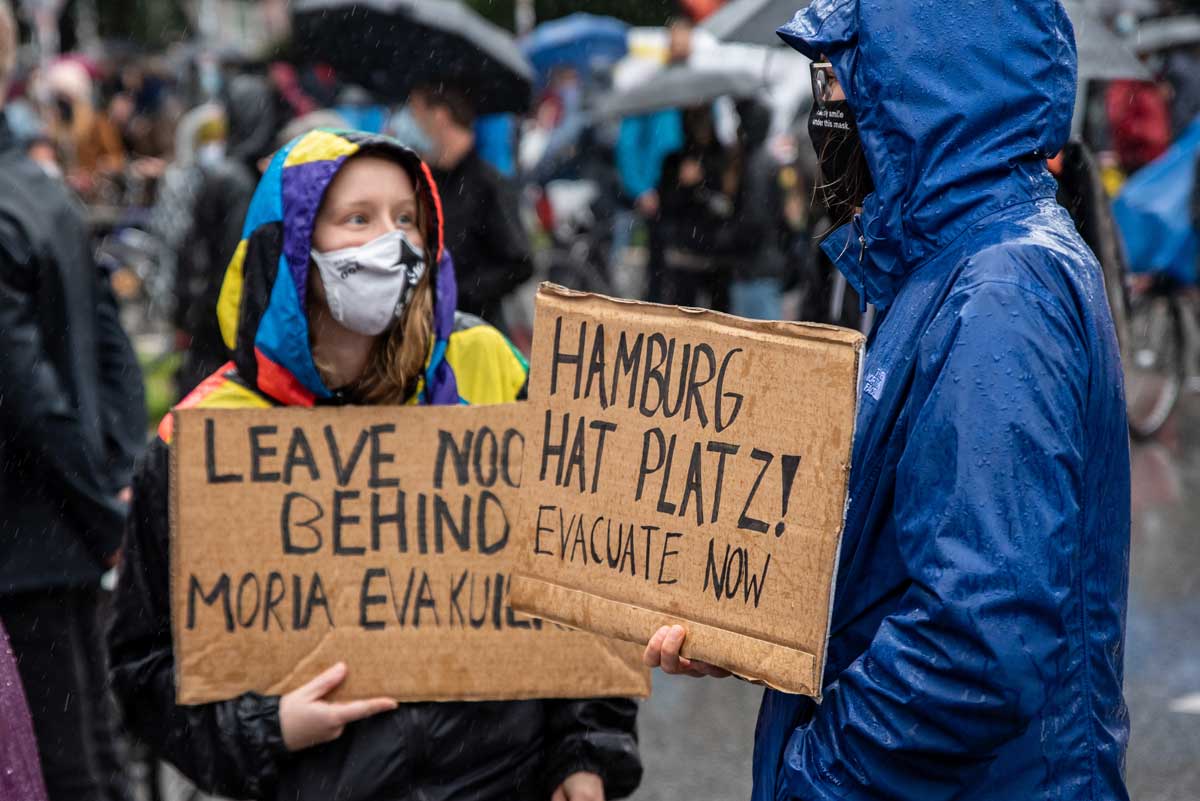 LEAVE
BEHIND
MORIA
HAMBURG
HAT PLATZ!
EVACUATE NOW
smile
under this mask.